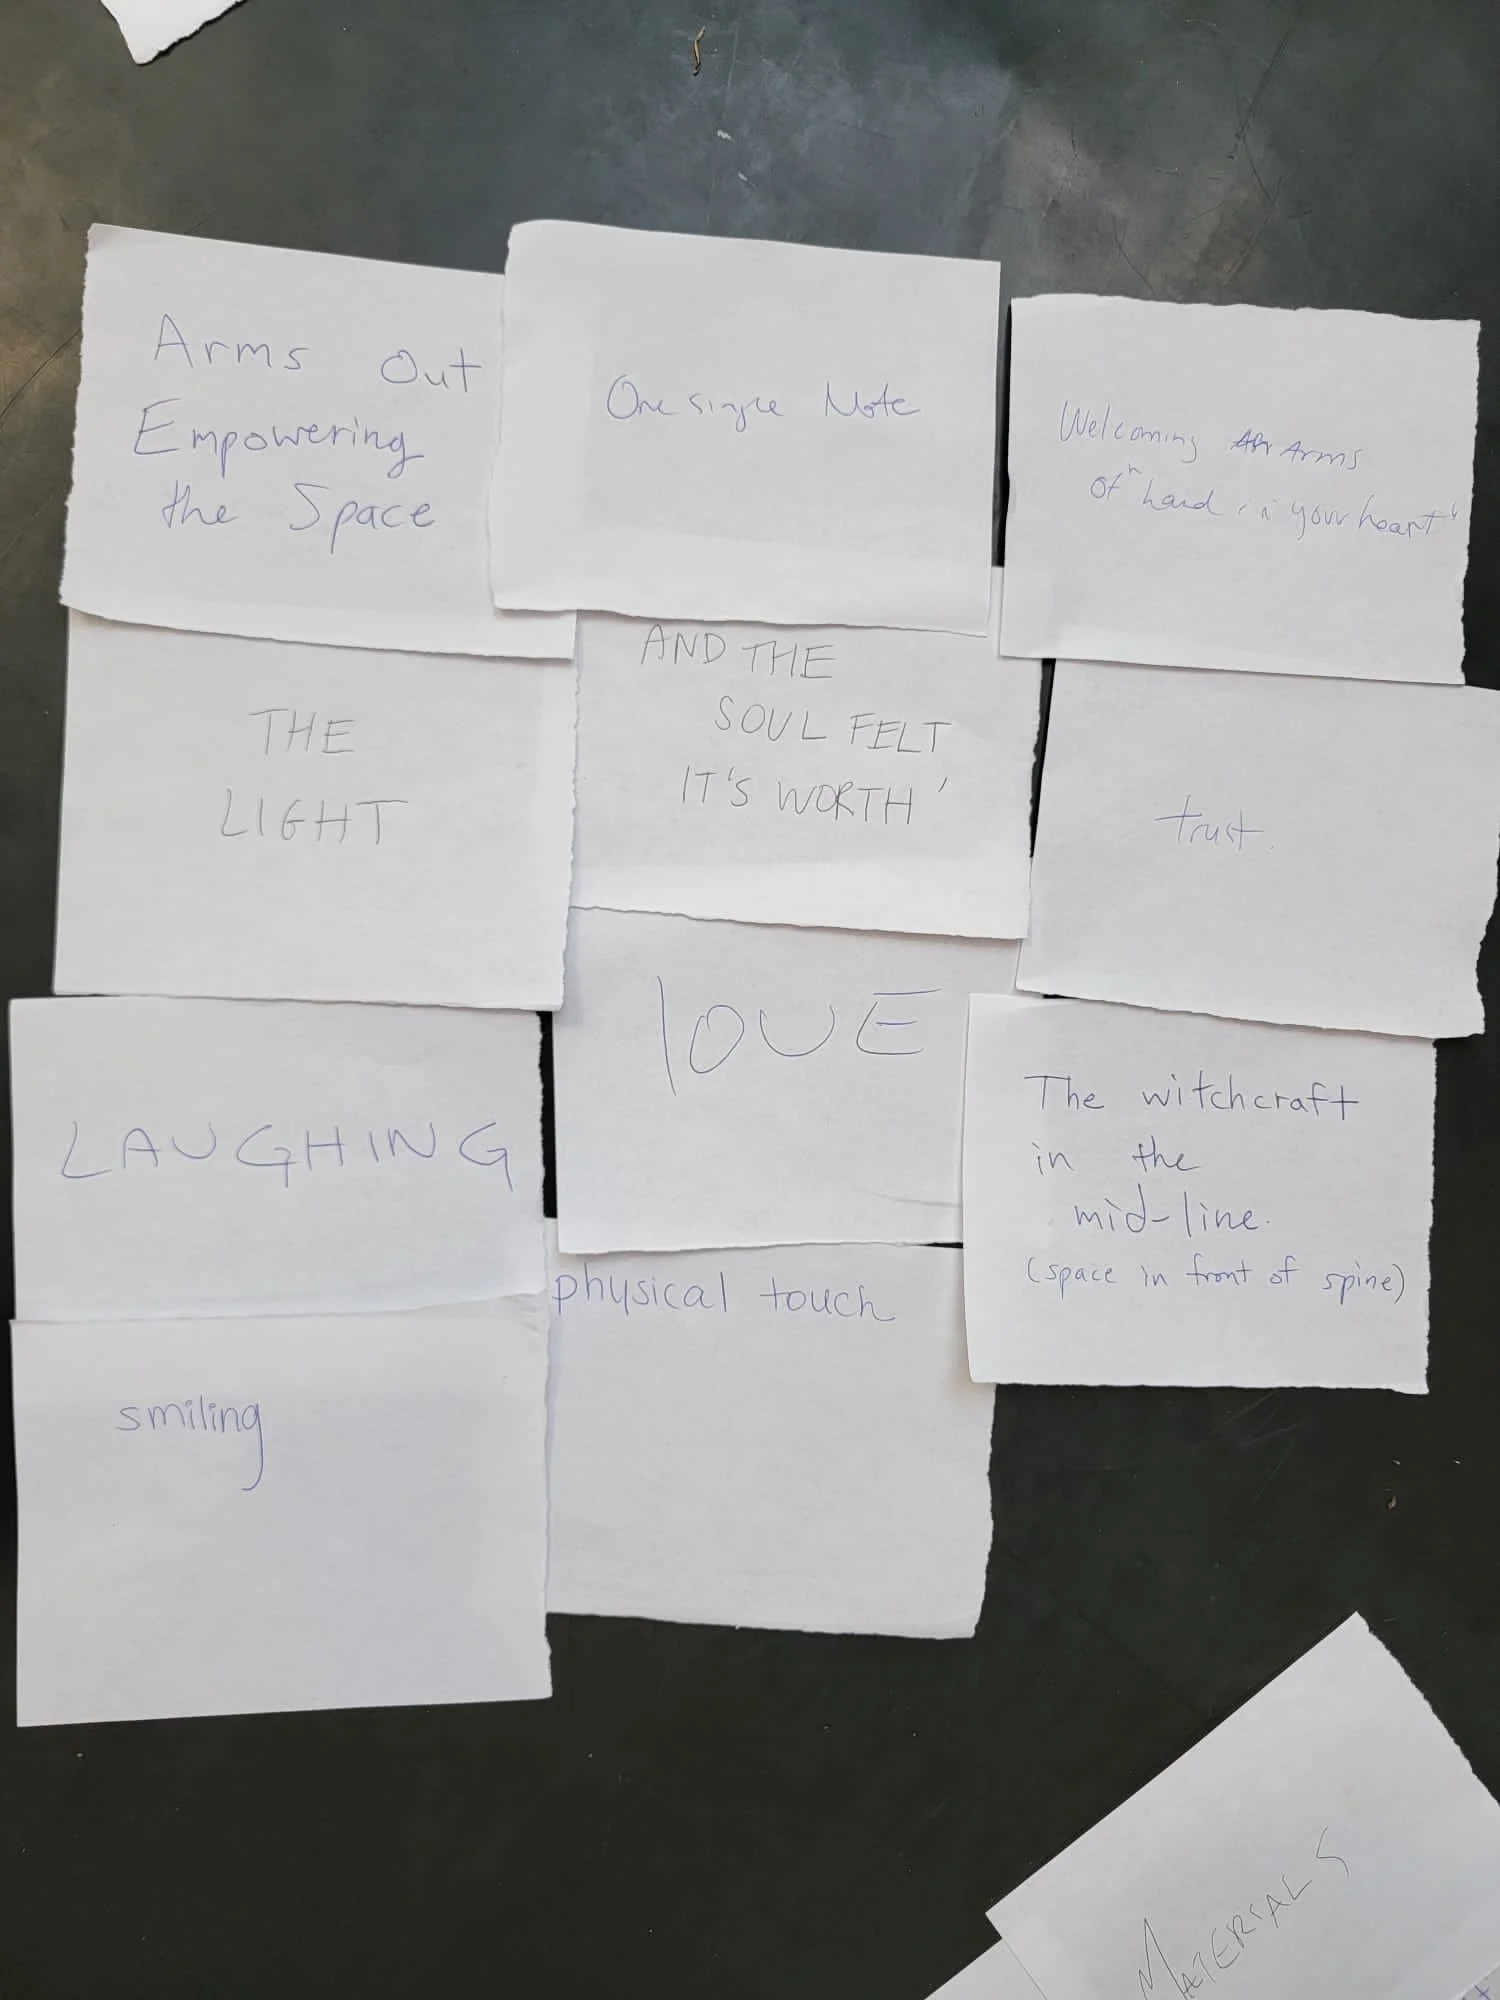 Arms Out
Empowering
the Space
One single Note
Welcoming Arms
of "hand, in your heart"
THE
LIGHT
AND THE
SOUL FELT
IT'S WORTH'
trust.
LAUGHING
lOVE
The witchcraft
in the
mid-line.
(space in front of spine)
smiling
physical touch
MATERIALS